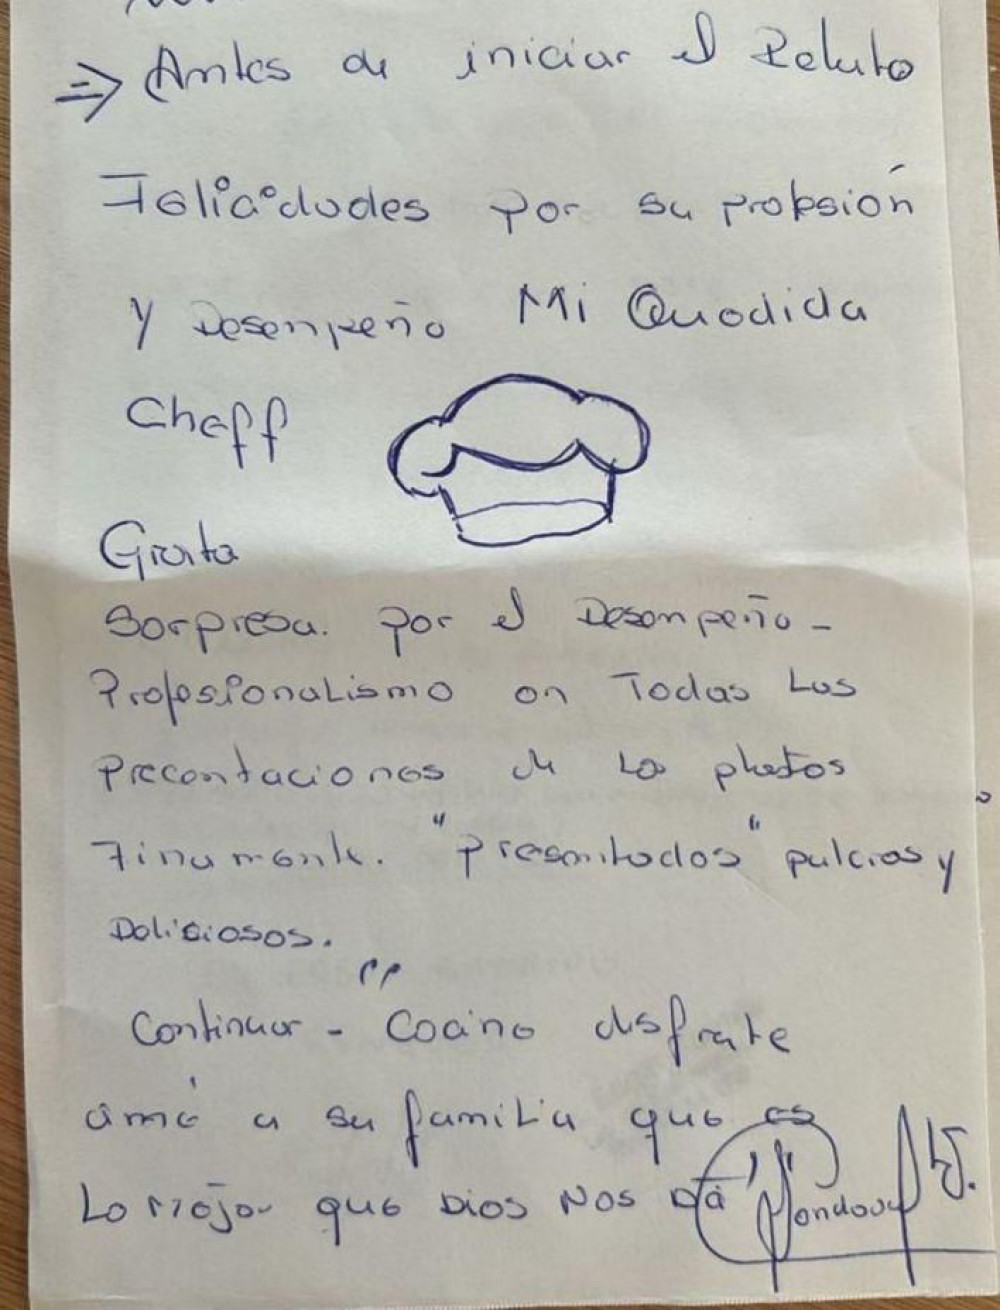 ⇒ Antes de iniciar el Relato
Felicidades por su profesión
y Desempeño Mi Querdida
Cheff
Grata
Sorpresa. por el Desempeño -
Profesionalismo en Todas Las
precentaciones de Lo platos
Finamente. "presentados" pulcros y
Deliciosos.
Continuar - Cocine disfrute
amé a su familia que es
Lo mejor que Dios Nos Da"